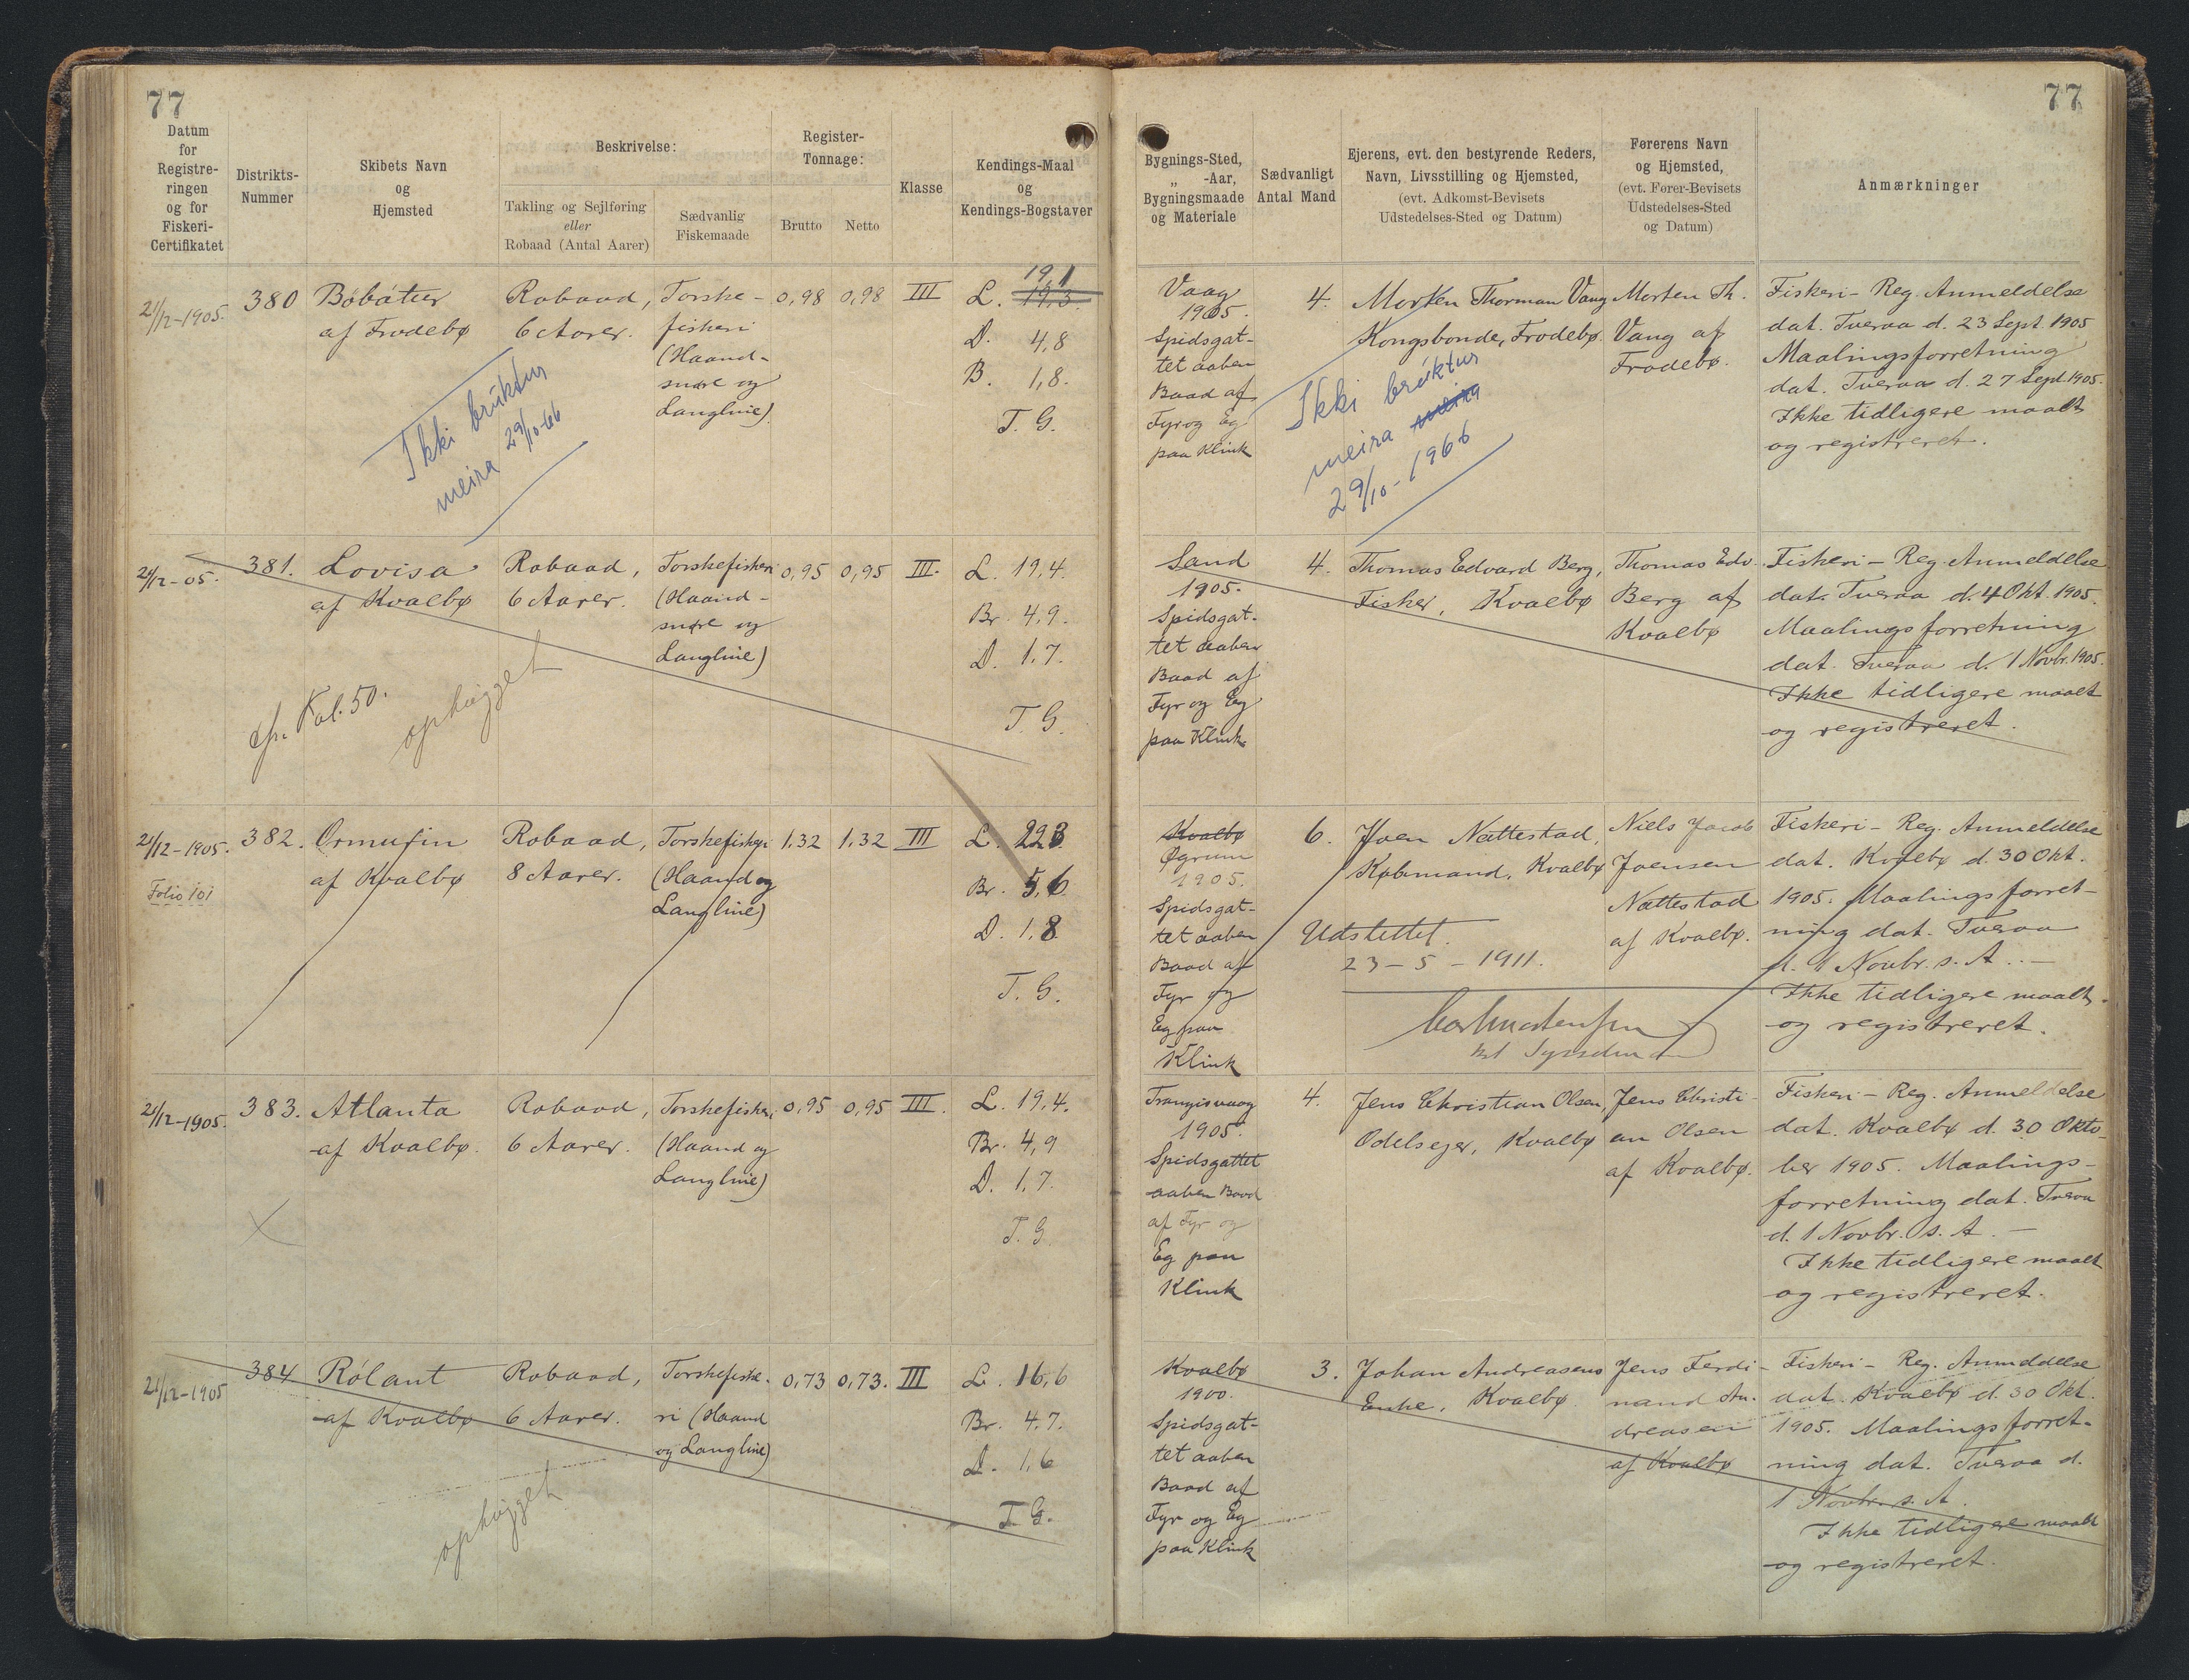 77
77
Datum
for
Registre-
ringen
og for
Fiskeri-
Certifikatet
Distrikts-
Nummer
Skibets Navn
og
Hjemsted
Beskrivelse:
Takling og Sejlføring
eller
Robaad (Antal Aarer)
Sædvanlig
Fiskemaade
Register-
Tonnage:
Brutto
Netto
Klasse
Kendings-Maal
og
Kendings-Bogstaver
Bygnings-Sted,
„ -Aar,
Bygningsmaade
og Materiale
Sædvanligt
Antal Mand
Ejerens, evt. den bestyrende Reders,
Navn, Livsstilling og Hjemsted,
(evt. Adkomst-Bevisets
Udstedelses-Sted og Datum)
Førerens Navn
og Hjemsted,
(evt. Fører-Bevisets
Udstedelses-Sted
og Datum)
Anmærkninger
21/12-1905.
380
Bóbátur
af Frodebø
Robaad,
6 Aarer.
Torske-
fiskeri
(Haand-
snøre og
Langline)
0,98
0,98
III
19,1
L. 19,3.
D. 4,8
B. 1,8.
T. G.
Ikki brúktur
meira 29/10-66
Vaag
1905.
Spidsgat-
tet aaben
Baad af
Fyr og Eg
paa Klink
4.
Morten Thorman Vang
Kongsbonde, Frodebø.
Morten Th.
Vang af
Frodebø.
Fiskeri-Reg. Anmeldelse
dat. Tveraa d. 23 Sept. 1905
Maalingsforretning
dat. Tveraa d. 27 Sept. 1905.
Ikke tidligere maalt
og registreret.
Ikki brúktur
meira meira
29/10-1966
21/12-05.
381.
Lovisa
af Kvalbø
Robaad,
6 Aarer.
Torskefiskeri
(Haand-
snøre og
Langline)
0,95
0,95
III.
L. 19,4.
Br. 4,9.
D. 1,7.
T. G.
Fol. 50.
ophugget
Sand
1905.
Spidsgat-
tet aaben
Baad af
Fyr og Eg
paa Klink.
4.
Thomas Edvard Berg,
Fisker, Kvalbø
Thomas Edv.
Berg af
Kvalbø
Fiskeri-Reg. Anmeldelse
dat. Tveraa d. 4 Okt. 1905.
Maalingsforretning
dat. Tveraa d. 1 Novbr. 1905.
Ikke tidligere maalt
og registreret.
21/12-1905.
Folio 101
382.
Ormurin
af Kvalbø
Robaad,
8 Aarer.
Torskefiskeri
(Haand og
Langline)
1,32
1,32
III
L. 22,3
Br. 5,6
D. 1,8
T. G.
Kvalbø
Øgrum
1905.
Spidsgat-
tet aaben
Baad af
Fyr og
Eg paa
Klink
6.
Joen Nættestad,
Købmand, Kvalbø
Niels Jacob
Joensen
Nættestad
af Kvalbø.
Fiskeri-Reg. Anmeldelse
dat. Kvalbø d. 30 Okt.
1905. Maalingsforret-
ning dat. Tveraa
d. 1 Novbr. s. A. —
Ikke tidligere maalt
og registreret.
Udslettet.
23-5-1911.
21/12-1905.
383.
Atlanta
af Kvalbø.
Robaad,
6 Aarer.
Torskefiskeri
(Haand og
Langline)
0,95
0,95
III.
L. 19,4.
Br. 4,9
D. 1,7.
T. G.
Trangisvaag
1905.
Spidsgattet
aaben Baad
af Fyr og
Eg paa
Klink
4.
Jens Christian Olsen,
Odelsejer, Kvalbø
Jens Christi-
an Olsen
af Kvalbø.
Fiskeri-Reg. Anmeldelse
dat. Kvalbø d. 30 Okto-
ber 1905. Maalings-
forretning dat. Tveraa
d. 1 Novbr. s. A. —
Ikke tidligere maalt
og registreret.
21/12-1905
384
Rólant
af Kvalbø
Robaad,
6 Aarer.
Torskefiske-
ri (Haand
og Langline)
0,73
0,73.
III
L. 16,6
Br. 4,7.
D. 1,6
T. G.
ophugget
Kvalbø
1900.
Spidsgat-
tet aaben
Baad af
Fyr og Eg
paa Klink
3.
Johan Andreasens
Enke, Kvalbø
Jens Ferdi-
nand An-
dreasen
af Kvalbø
Fiskeri-Reg. Anmeldelse
dat. Kvalbø d. 30 Okt.
1905. Maalingsforret-
ning dat. Tveraa d.
1 Novbr. s. A.
Ikke tidligere maalt
og registreret.